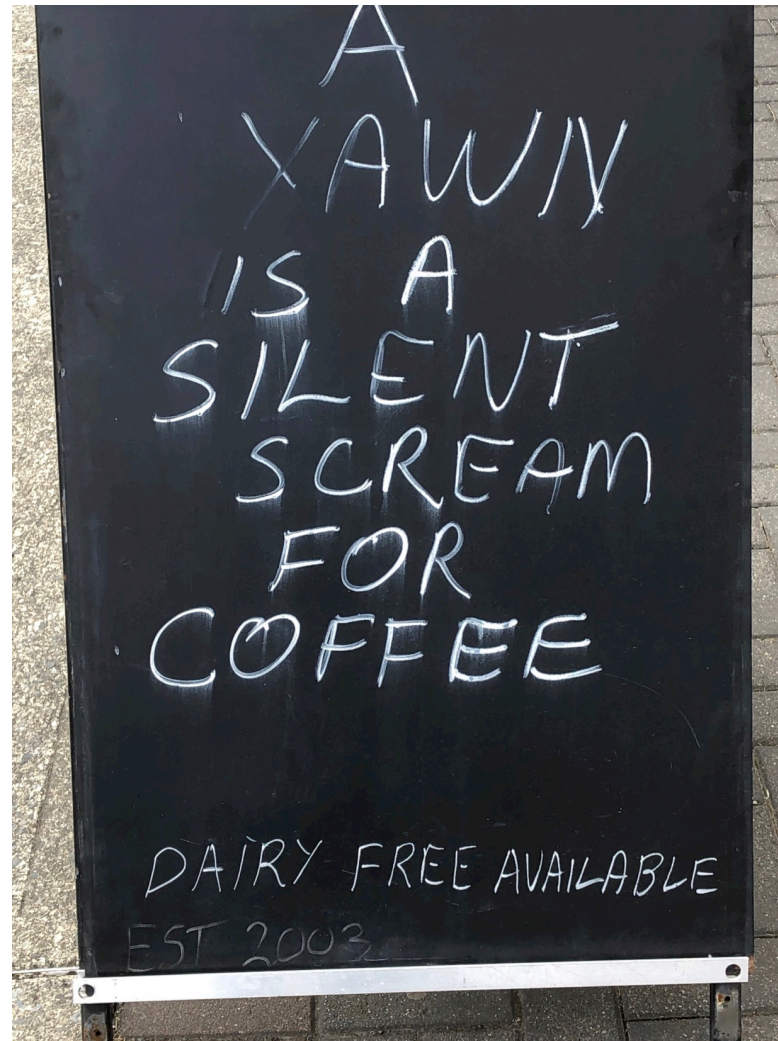 A
YAWN
IS A
SILENT
SCREAM
FOR
COFFEE
DAIRY FREE AVAILABLE
EST 2003